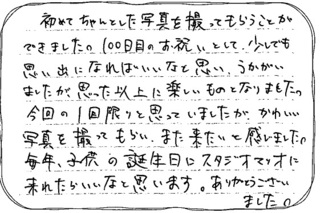 初めてちゃんとした写真を撮ってもらうことが
できました。100日目のお祝いとして、少しでも
思い出になればいいなと思い、うかがい
ましたが、思った以上に楽しいものとなりました。
今回の1回限りと思っていましたが、かわいい
写真を撮ってもらい、また来たいと感じました。
毎年、子供の誕生日にスタジオマリオに
来れたらいいなと思います。ありがとうござい
ました。